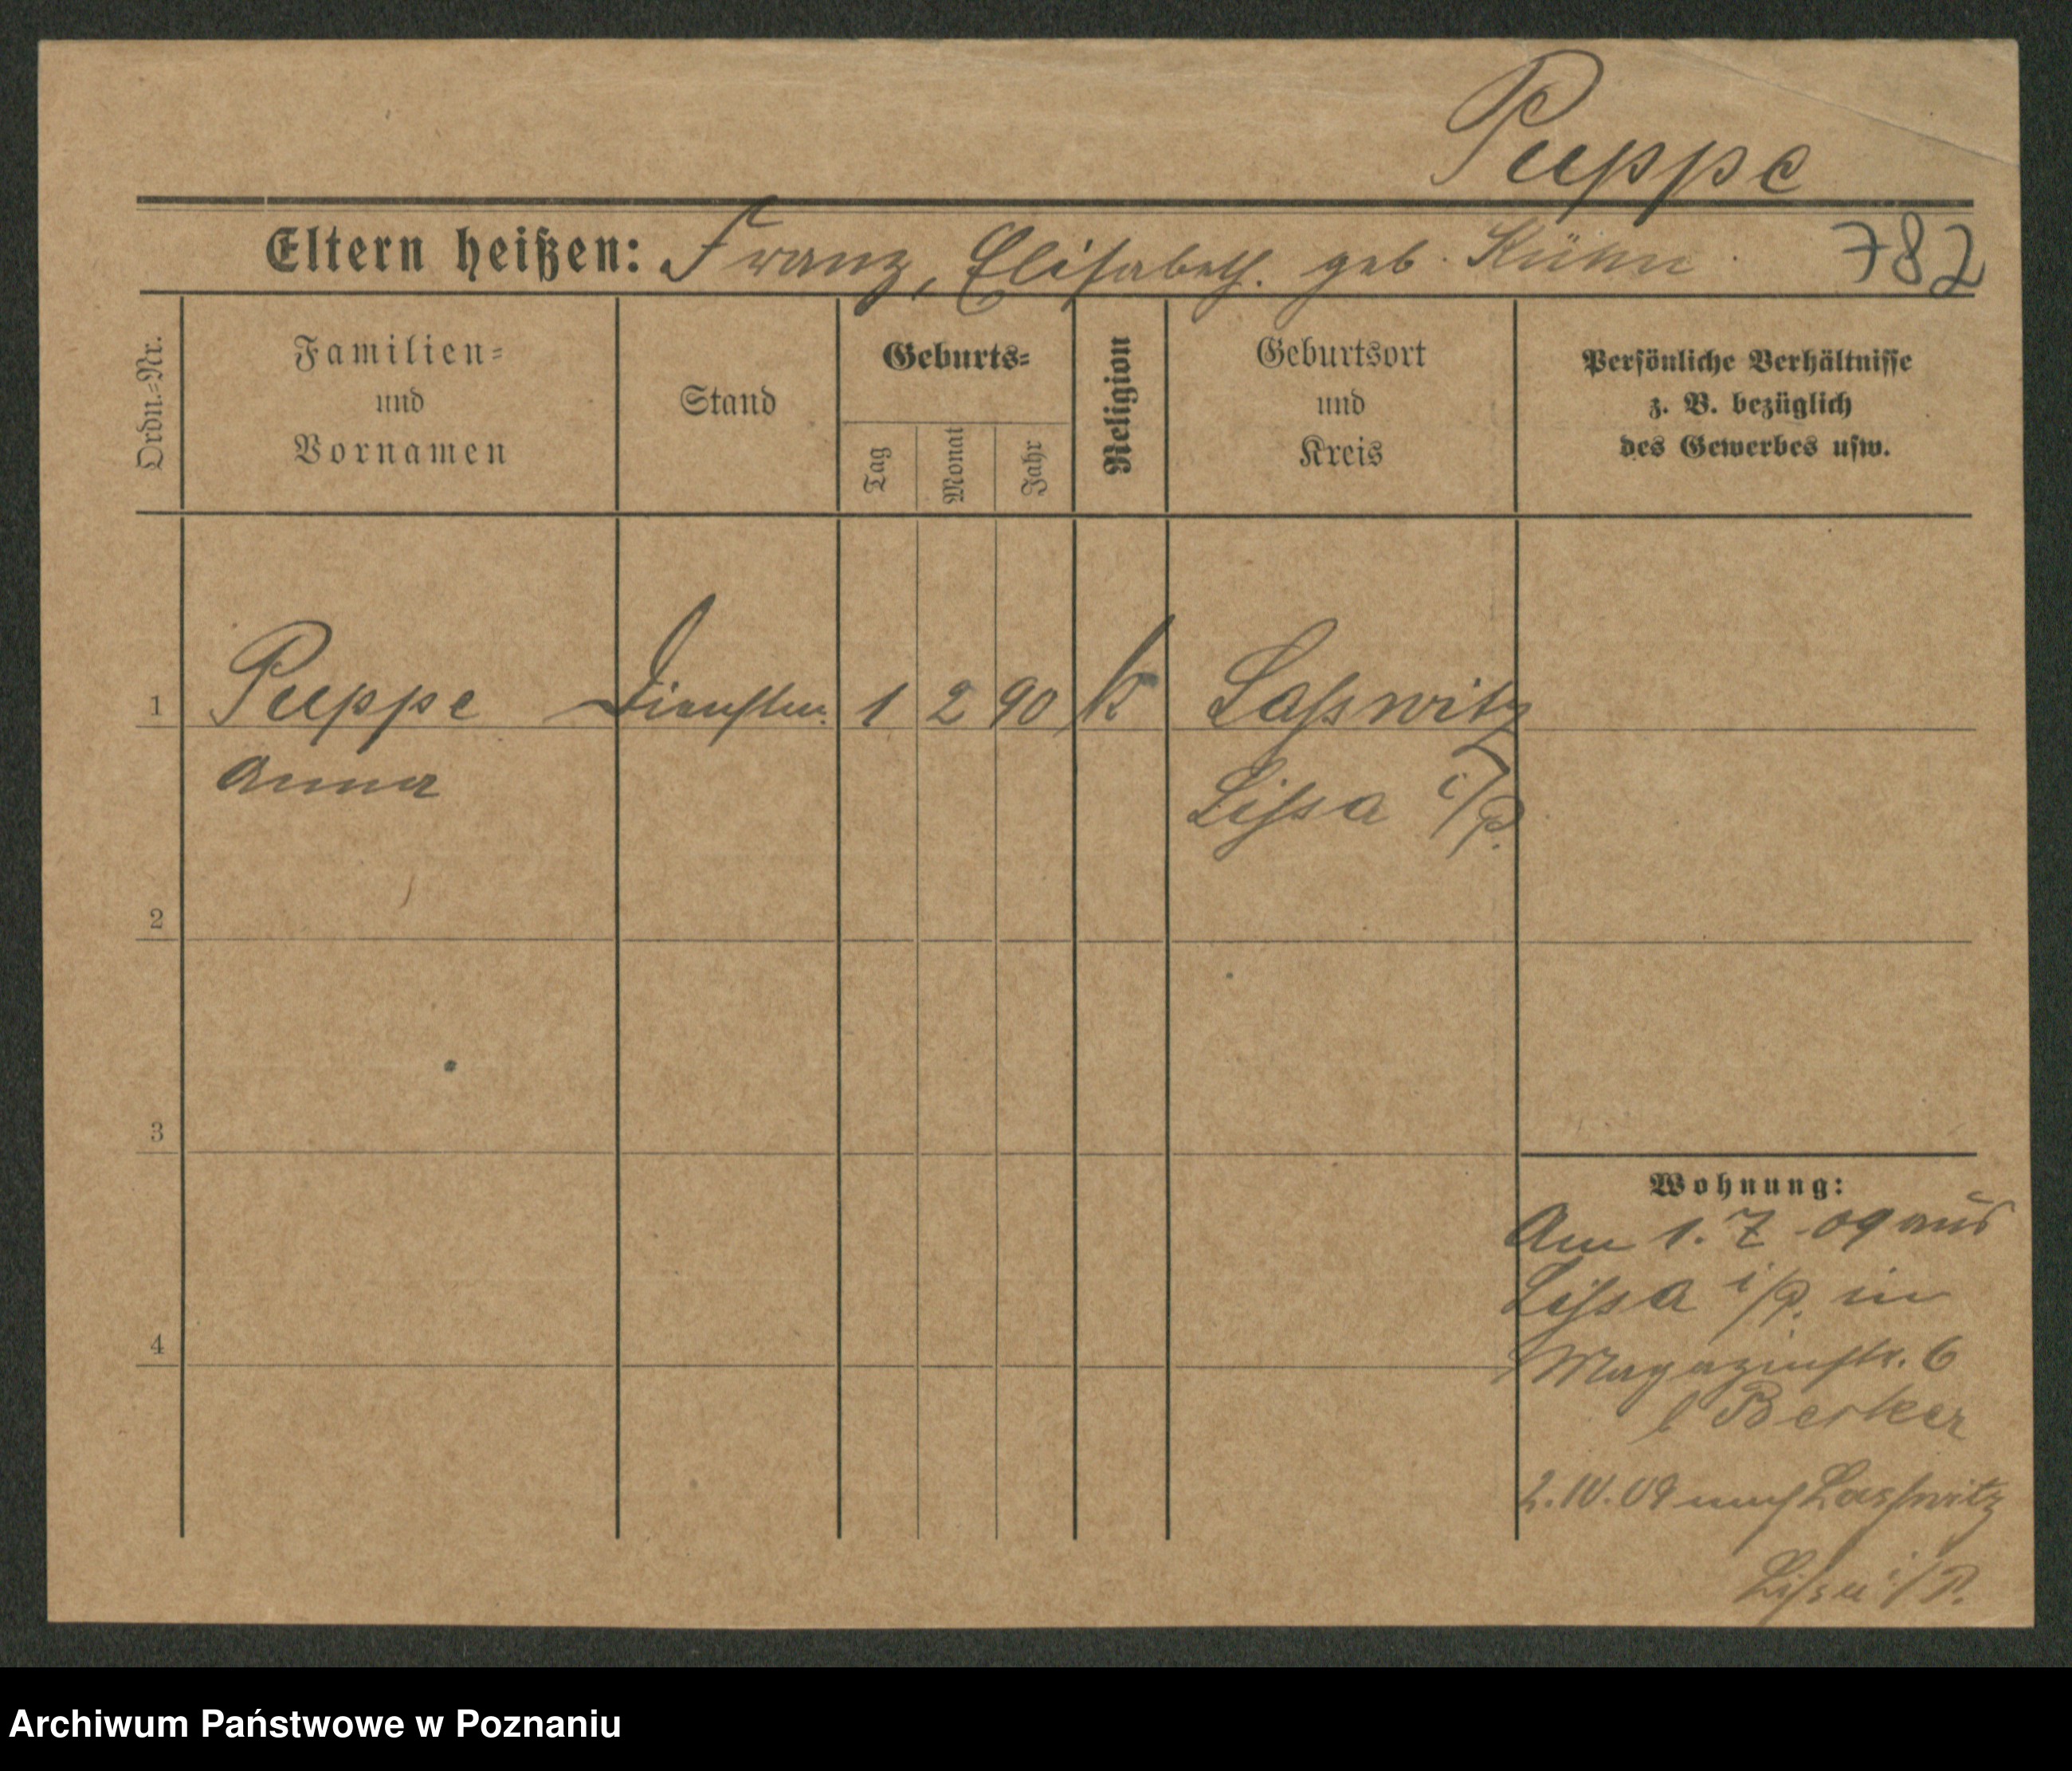 Puppe
Eltern heißen: Franz, Elisabeth. geb. Kühn
782
Ordn.-Nr.
Familien-
und
Vornamen
Stand
Geburts-
Tag
Monat
Jahr
Religion
Geburtsort
und
Kreis
Persönliche Verhältnisse
z. B. bezüglich
des Gewerbes usw.
1 Puppe Dienstm. 1 2 90 k Laßwitz
Anna Lissa i/P.
2
3
4
Wohnung:
Am 1. 7. 09 aus
Lissa i/P. in
Magazinstr. 6
b Berker
2. IV. 09 nach Lasswitz
Lissa i/P.
Archiwum Państwowe w Poznaniu